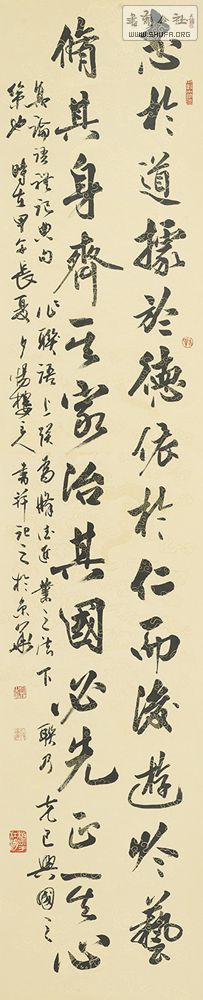 志於道據於德依於仁而後遊於藝
脩其身齊其家治其國必先正其心
集論語禮記典句作聯語上聯為脩德進業之法下聯乃克己興國之
策也時在甲午長夏夕陽樓主人書并記之於京華
WWW.SHUFA.ORG